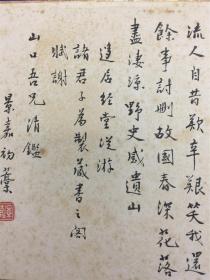 流人自昔歎辛艱笑我還
餘事討刪故國春深花落
盡淒涼野史感遺山
逢居經堂從游
諸君子為製藏書之閣
賦謝
山口吾兄清鑑
景嘉初藁